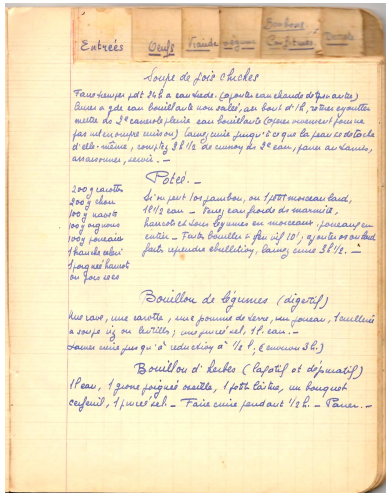 Entrées
Oeufs
Viande
Légumes
Bonbons
Confitures
Soupe de pois chiches
Faire tremper pdt 24h à eau tiède (ajouter eau chaude de temps en temps)
Cuire à gde eau bouillante non salée, au bout d'1h, retirer égoutter
mettre ds 2e casserole pleine eau bouillante (opérer vivement pour ne
pas interrompre cuisson) laissez cuire jusqu'à ce que la peau se détache
d'elle-même, comptez 2h 1/2 de cuisson ds 2e eau, passer au tamis,
assaisonner, servir. —
Potée. —
200g carottes
200g chou
100g navets
100g oignons
100g poireaux
1 branche céleri
1 poignée haricot
ou pois secs
Si on peut 1 os jambon, ou 1 petit morceau lard,
1l 1/2 eau — Verser eau froide ds marmite,
haricots et tous légumes en morceaux, poireaux en
entier — Faites bouillir à feu vif 10', ajoutez os ou lard
faites reprendre ébullition, laissez cuire 3h 1/2. —
Bouillon de légumes (digestif)
Une rave, une carotte, une pomme de terre, un poireau, 1 cuillerée
à soupe riz ou lentilles; une pincée sel, 1l. eau. —
Laisser cuire jusqu'à réduction à 1/2 l. (environ 3h.)
Bouillon d'herbes (laxatif et dépuratif)
1l eau, 1 grosse poignée oseille, 1 petite laitue, un bouquet
cerfeuil, 1 pincée sel. — Faire cuire pendant 1/2 h. — Passer. —